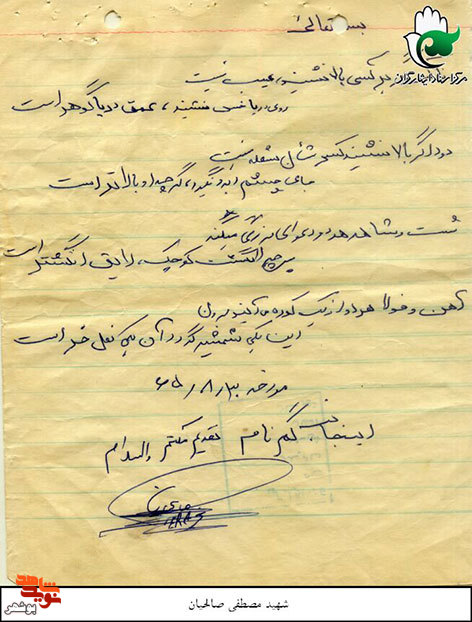 بسمه تعالی
مرکز اسناد ایثارگران
گر کسی بالا نشیند، عیب نیست
روی دریا خس نشیند، عمق دریا گوهر است
دود اگر بالا نشیند کسر شأن شعله نیست
جای چشم ابرو نگیرد، گرچه او بالاتر است
شست و شاهد هر دو دعوای بزرگی میکنند
پس چرا انگشت کوچک لایق انگشتر است
آهن و فولاد هر دو از یک کوره می آیند برون
این یکی شمشیر گردد آن یکی نعل خر است
مورخه ۶۵/۸/۳۰
اینجانب گم نام تقدیم میکنم والسلام
نوید شاهد
بوشهر
شهید مصطفی صالحیان